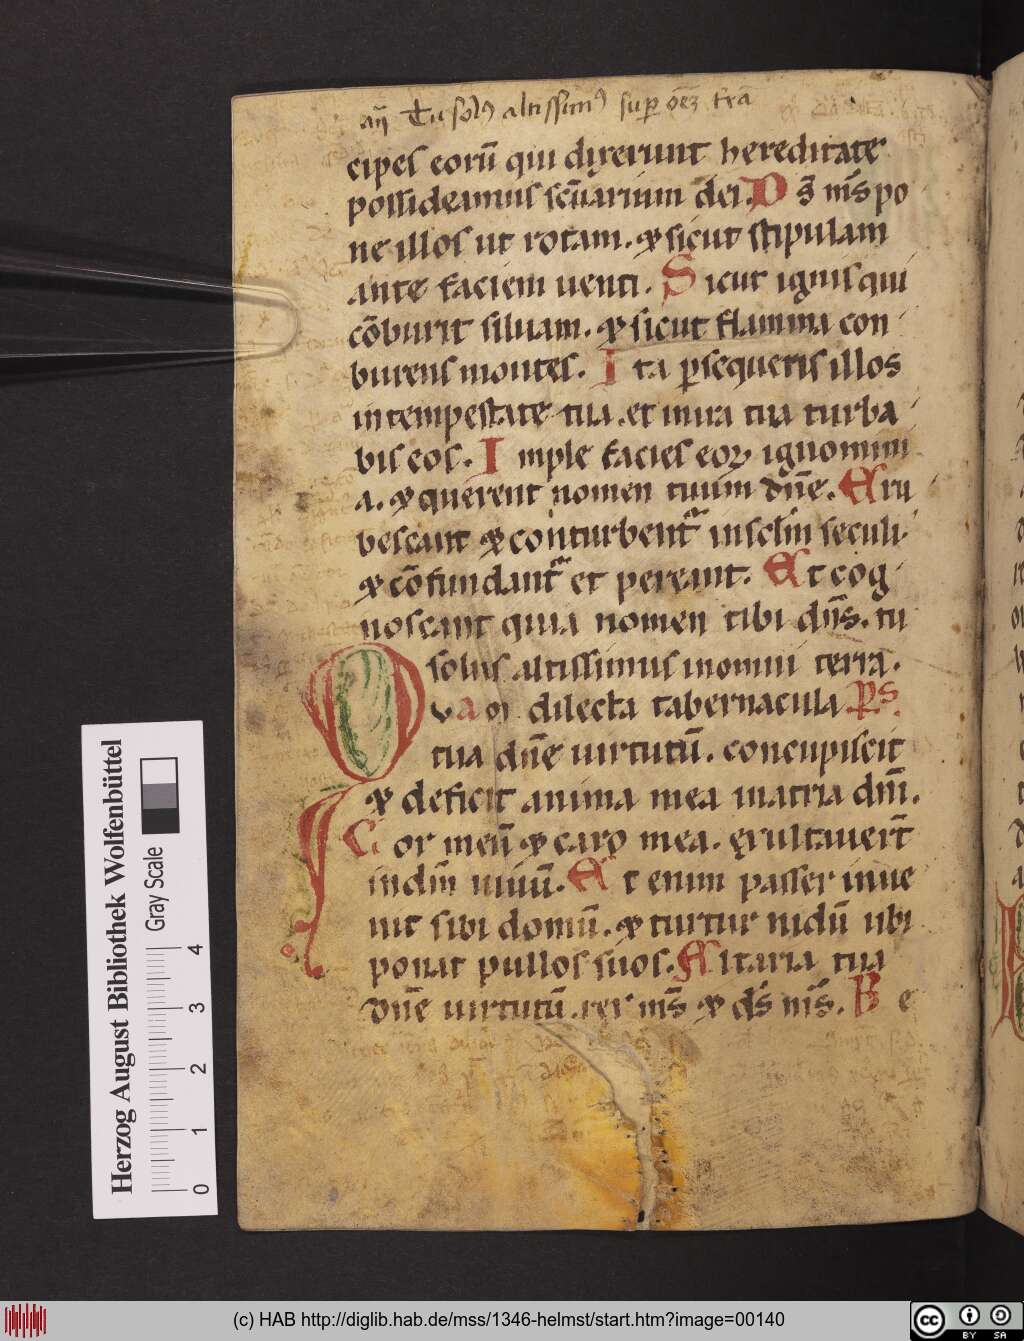 añ Tu solꝰ altissimꝰ suꝑ oēꝫ trā
cipes eorū qui dixerunt hereditate
possideamus sc̄uarium dei. Ds̄ mś po
ne illos ut rotam. ⁊ sicut stipulam
ante faciem uenti. Sicut ignis qui
cōburit siluam. ⁊ sicut flamma con
burens montes. Ita ꝑsequeris illos
in tempestate tua. et in ira tua turba
bis eos. Imple facies eoꝝ ignomini
a. ⁊ querent nomen tuum dn̄e. Eru
bescant ⁊ conturbent᷑ in sclm̄ seculi.
⁊ cōfundant᷑ et pereant. Et cog
noscant quia nomen tibi dn̄s. tu
solus altissimus in omni terra.
Quam dilecta tabernacula Ps.
tua dn̄e uirtutū. concupiscit
⁊ deficit anima mea in atria dn̄i.
Cor meū ⁊ caro mea. exultauerūt
in dm̄ uiuū. Et enim passer inue
nit sibi domū. ⁊ turtur nidū ubi
ponat pullos suos. Altaria tua
dn̄e uirtutū. rex mś ⁊ dś mś. Be
Herzog August Bibliothek Wolfenbüttel
Gray Scale
0 1 2 3 4
(c) HAB http://diglib.hab.de/mss/1346-helmst/start.htm?image=00140
cc BY SA